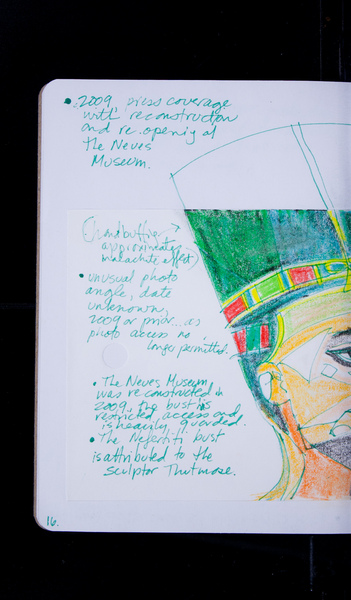 • 2009, press coverage
with reconstructon
and re.openig of
the Neues
Museum.
approximate
malachite effect)
• unusual photo
angle, date
unknown,
2009 or prior... as
photo access no
longer permitted.
• The Neues Museum
was reconstructed in
2009. the bust is
restricted access and
is heavily guarded.
• The Nefertiti bust
is attributed to the
sculptor Thutmose.
16.